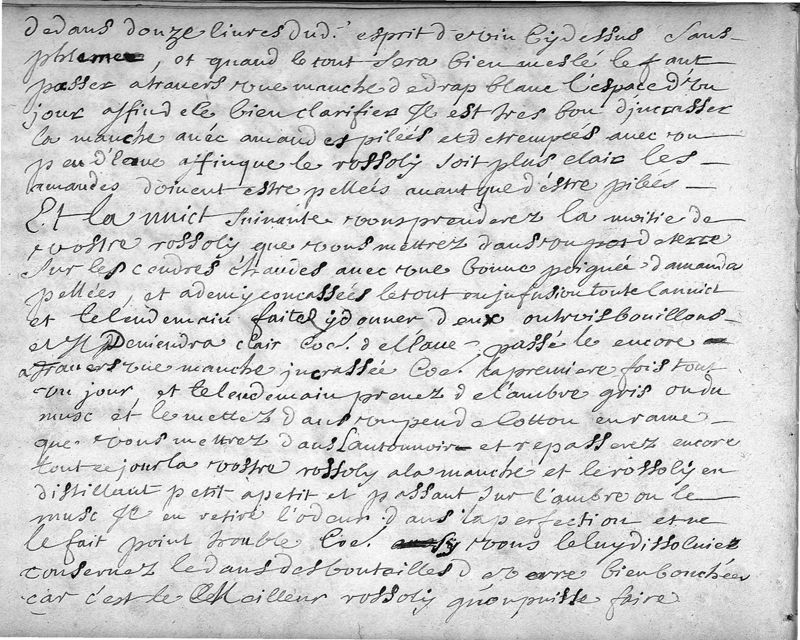 dedans douze livres dud.t esprit de vin cy dessus sans
phlemes, et quand le tout sera bien meslé le faut
passer atravers une manche de drap blanc l'espace d'un
jour affin de le bien clarifier Il est tres bon d'jncrasser
la manche avec amandes pileés et detrempeés avec un
peu d'eau affinque le rossoly soit plus clair les
amandes doivent estre pelleés avant que d'éstre pileés
Et la nuict suivante vous prenderez la moitie de
vostre rossoly que vous mettrez dans un pot de terre
sur les cendres chaudes avec une bonne poignée d'amande
pelleés, et ademy concasseés le tout en jnfusion toute la nuict
et le lendemain faite l'y donner deux ou trois bouillons
et Il Deviendra clair coe. de l'eau passé le encore
atravers une manche jncrasseé coe. la premiere fois tout
un jour, et le lendemain prenez de l'ambre gris ou du
musc et le mettez dans un peu de cotton en rame
que vous mettrez dans l'antonnoir et repasserez encore
tout ce jour la vostre rossoly a la manche et le rossoly en
distillant petit apetit et passant sur l'ambre ou le
musc Il en retire l'odeur dans la perfection et ne
le fait point trouble coe. sy vous le luy dissolviez
conservez le dans des boutailles de verre bien bouchées
car c'est le Meilleur rossoly qu'on puisse faire